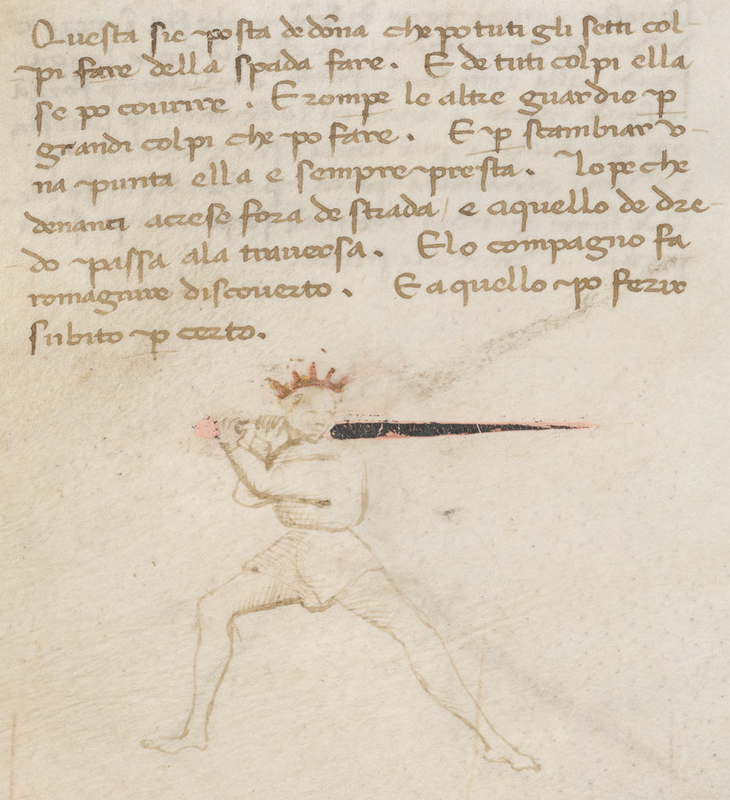 Questa sie posta de dōna che po tuti gli setti col-
pi fare della spada fare. E de tuti colpi ella
se po courire. E rompe le altre guardie p̱
grandi colpi che po fare. E p̱ scambiar v-
na punta ella e sempre presta. Lo pe che
denanci acrese fora de strada / e aquello de dre-
do passa ala traversa. E lo compagno fa
romagnire discouerto. E aquello po ferir
subito p̱ certo.